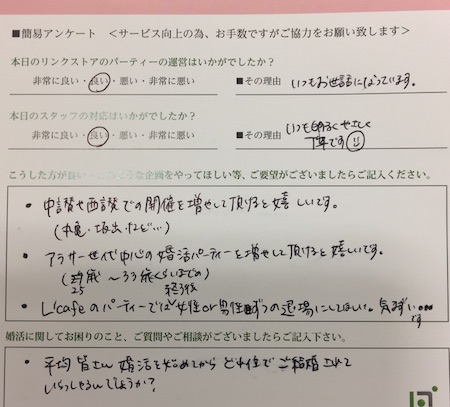 ■簡易アンケート　＜サービス向上の為、お手数ですがご協力をお願い致します＞
本日のリンクストアのパーティーの運営はいかがでしたか？
非常に良い・良い・悪い・非常に悪い　■その理由　いつもお世話になっています。
本日のスタッフの対応はいかがでしたか？
非常に良い・良い・悪い・非常に悪い　■その理由　いつも明るくやさしく
丁寧です
こうした方が良い・こんな企画をやってほしい等、ご要望がございましたらご記入ください。
・中讃や西讃での開催を増やして頂けると嬉しいです。
（丸亀・坂出・など…）
・アラサー世代中心の婚活パーティーを増やして頂けると嬉しいです。
（25歳～33歳くらいまでの）
・L'cafeのパーティーでは女性or男性ずつの退場にしてほしい。気まずい…
です
婚活に関してお困りのこと、ご質問やご相談がございましたらご記入下さい。
・平均 皆さん 婚活を始めてから どれ位で ご結婚されて
いらっしゃるんでしょうか？